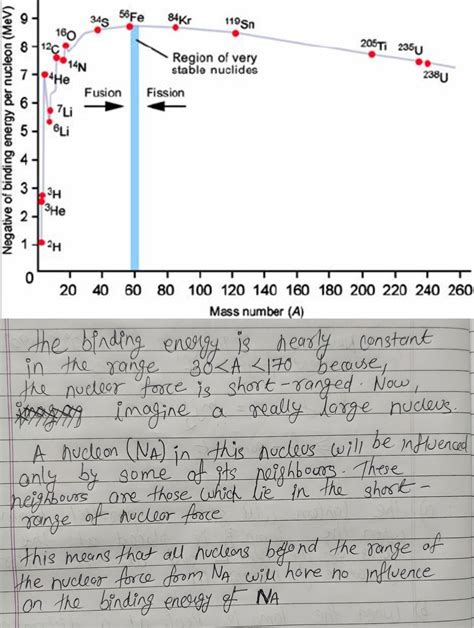 Negative of binding energy per nucleon (MeV)
9
8
7
6
5
4
3
2
1
0
12C
16O
34S
56Fe
84Kr
119Sn
205Ti
235U
238U
14N
4He
7Li
6Li
3H
3He
2H
Region of very
stable nuclides
Fusion
Fission
20 40 60 80 100 120 140 160 180 200 220 240 260
Mass number (A)
the binding energy is nearly constant
in the range 30<A<170 because,
the nuclear force is short-ranged. Now,
imagine a really large nucleus.
A nucleon (NA) in this nucleus will be influenced
only by some of its neighbours. These
neighbours are those which lie in the short-
range of nuclear force
this means that all nucleons beyond the range of
the nuclear force from NA will have no influence
on the binding energy of NA